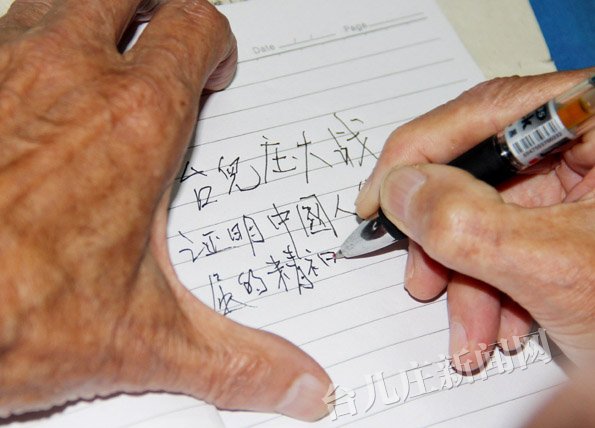 Date / / Page
台兒庄大战
证明中國人
的精
台儿庄新闻网